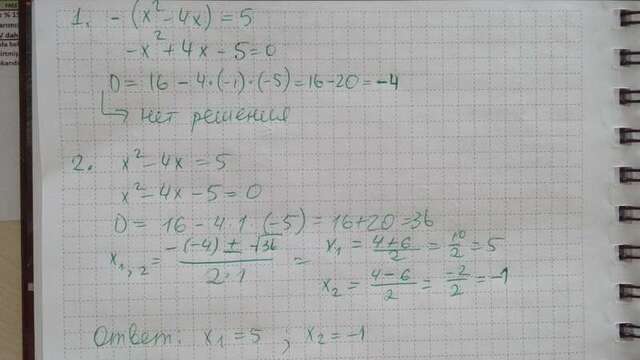 1. -(x²-4x)=5
-x²+4x-5=0
D= 16 - 4·(-1)·(-5)=16-20=-4
↳ нет решения
2. x²-4x=5
x²-4x-5=0
D= 16 - 4 1 (-5) = 16+20=36
x₁,₂= (-(-4) ± √36)/(2·1) = x₁ = (4+6)/2 = 10/2 = 5
x₂ = (4-6)/2 = -2/2 = -1
Ответ: x₁=5 ; x₂=-1